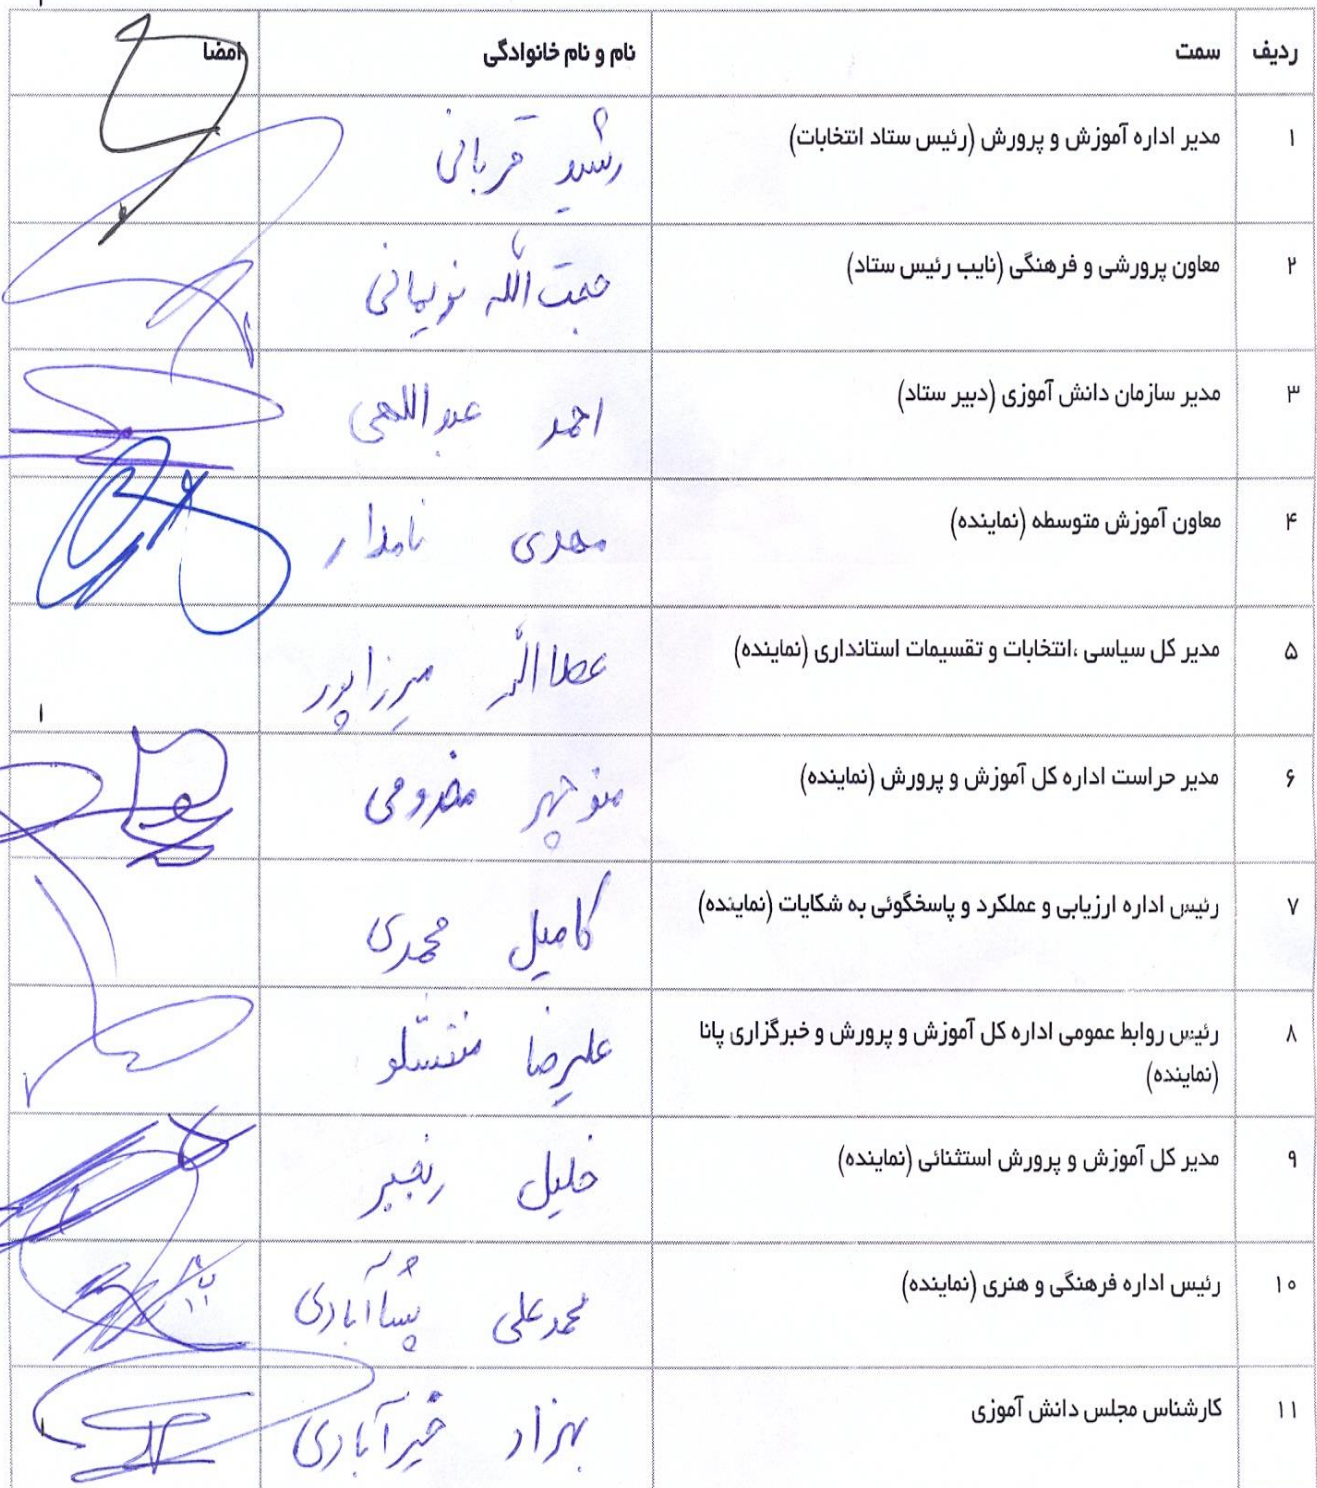 ردیف سمت نام و نام خانوادگی امضا
۱ مدیر اداره آموزش و پرورش (رئیس ستاد انتخابات) رشید قربانی
۲ معاون پرورشی و فرهنگی (نایب رئیس ستاد) حجت الله نریمانی
۳ مدیر سازمان دانش آموزی (دبیر ستاد) احمد عبداللهی
۴ معاون آموزش متوسطه (نماینده) مهدی نامدار
۵ مدیر کل سیاسی ،انتخابات و تقسیمات استانداری (نماینده) عطاالله میرزاپور
۶ مدیر حراست اداره کل آموزش و پرورش (نماینده) منوچهر
۷ رئیس اداره ارزیابی و عملکرد و پاسخگوئی به شکایات (نماینده) کامیل محمدی
۸ رئیس روابط عمومی اداره کل آموزش و پرورش و خبرگزاری پانا علیرضا
(نماینده)
۹ مدیر کل آموزش و پرورش استثنائی (نماینده) خلیل رنجبر
۱۰ رئیس اداره فرهنگی و هنری (نماینده) محمدعلی
۱۱ کارشناس مجلس دانش آموزی بهزاد خیرآبادی